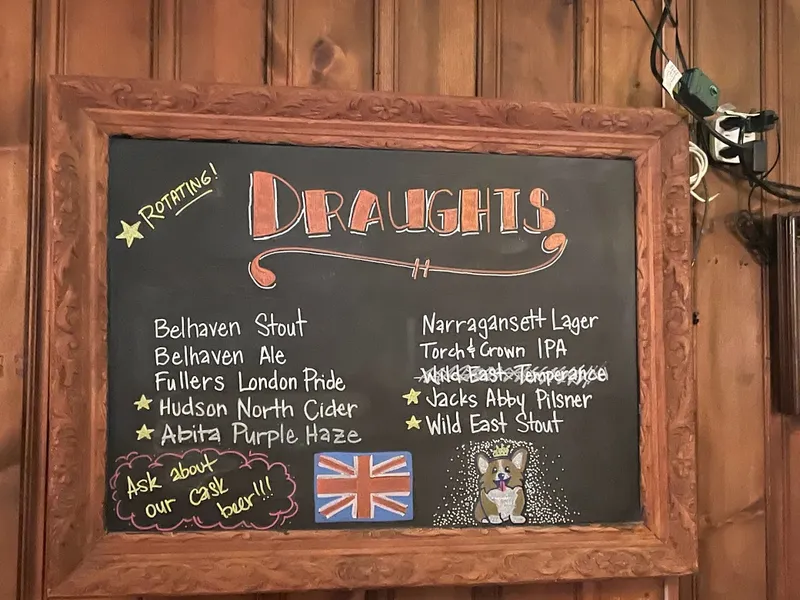 ROTATING!
DRAUGHTS
Belhaven Stout
Belhaven Ale
Fullers London Pride
Hudson North Cider
Abita Purple Haze
Narragansett Lager
Torch & Crown IPA
Wild East Temperance
Jacks Abby Pilsner
Wild East Stout
Ask about
our cask
beer!!!